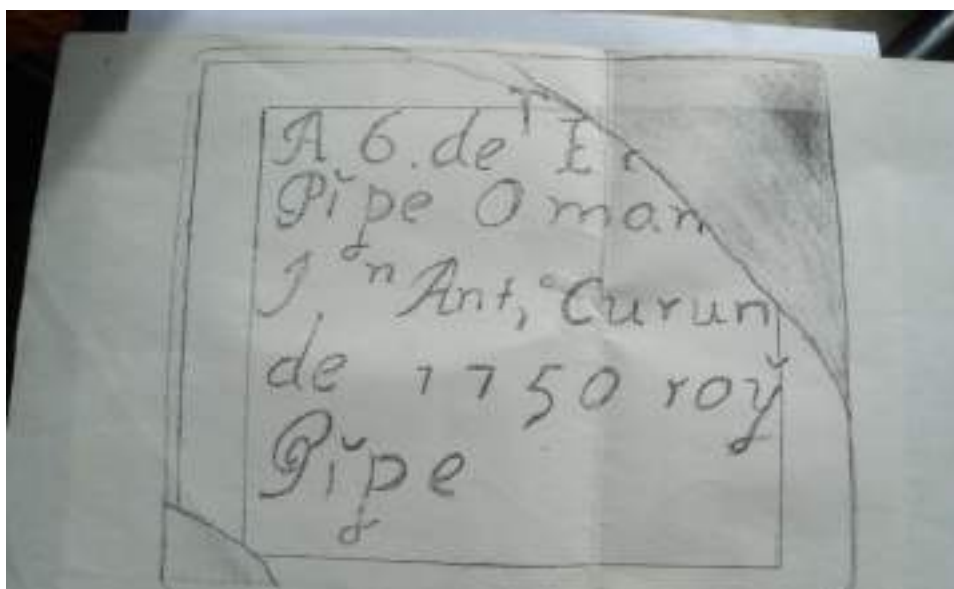 A 6. de Tͤ E
Pĭpe Oman
J.ⁿ Ant,° Curun
de 1750 roy̆
Pĭpe